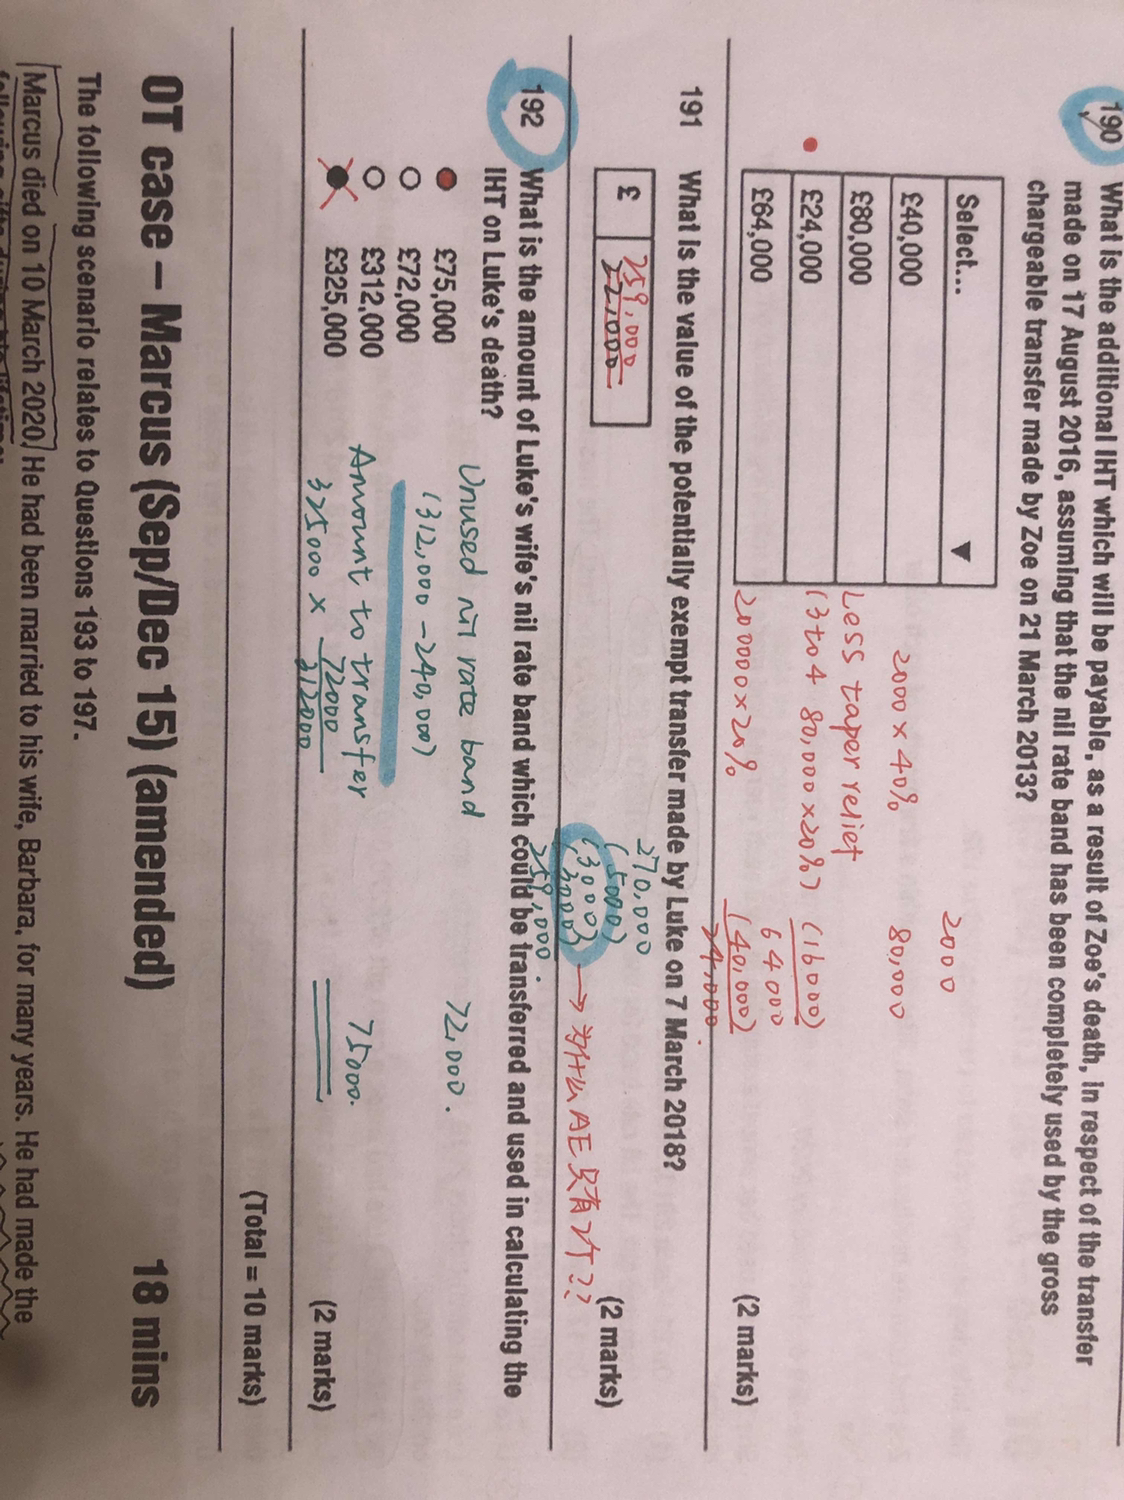 190 What is the additional IHT which will be payable, as a result of Zoe's death, in respect of the transfer
made on 17 August 2016, assuming that the nil rate band has been completely used by the gross
chargeable transfer made by Zoe on 21 March 2013?
Select... ▼
£40,000
£80,000
£24,000
£64,000
2000
2000 × 40% 80,000
Less taper relief
(3 to 4 80,000 × 20%) (16000)
64000
200000 × 20% (40,000)
24,000.
(2 marks)
191 What is the value of the potentially exempt transfer made by Luke on 7 March 2018?
£ 259,000
270,000
(5000)
(3000)
(3000)
259,000.
→ 为什么AE只有2个??
(2 marks)
192 What is the amount of Luke's wife's nil rate band which could be transferred and used in calculating the
IHT on Luke's death?
£75,000
£72,000
£312,000
£325,000
Unused nil rate band
(312,000 - 240,000) 72,000.
Amount to transfer
325000 × 72000/312000 75000.
(2 marks)
(Total = 10 marks)
OT case – Marcus (Sep/Dec 15) (amended) 18 mins
The following scenario relates to Questions 193 to 197.
Marcus died on 10 March 2020. He had been married to his wife, Barbara, for many years. He had made the